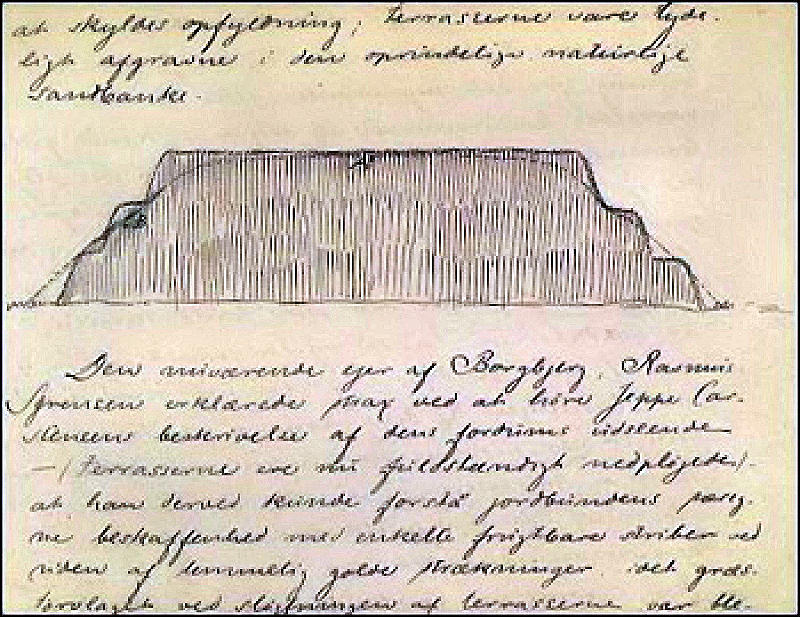 at skyldes opfyldning; terrasserne vare tyde-
ligt afgravne i den oprindelige naturlige
sandbanke.
Den nuværende ejer af Borgbjerg, Rasmus
Sørensen erklærede strax ved at höre Jeppe Car-
stensens beskrivelse af dens fordums udseende
– (terrasserne ere nu fuldstændigt nedpløjede).
at han derved kunde forstå jordbundens sæeg-
ne beskaffenhed med enkelte frugtbare striber ved
siden af temmelig golde strækninger. idet græs-
törvlaget ved sløjfningen af terrasserne var ble-